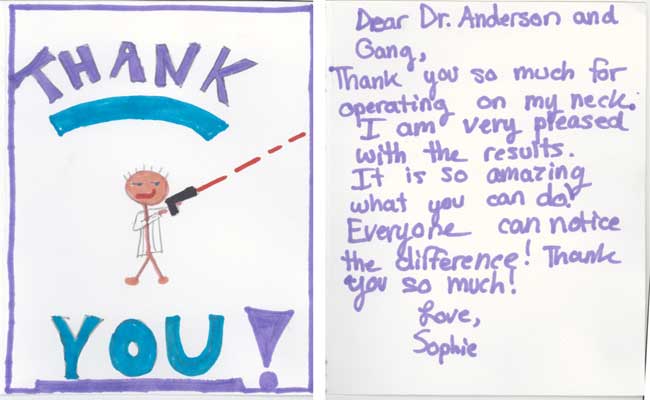 THANK
YOU!
Dear Dr. Anderson and
Gang,
Thank you so much for
operating on my neck.
I am very pleased
with the results.
It is so amazing
what you can do!
Everyone can notice
the difference! Thank
you so much!
Love,
Sophie